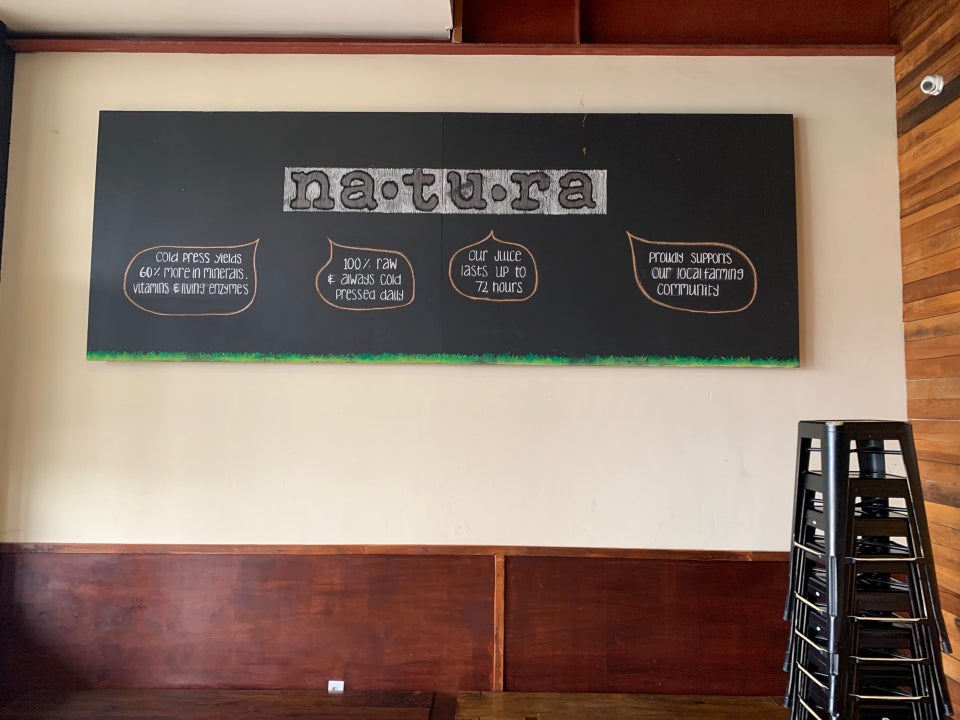 na•tu•ra
Cold press yields
60% more in minerals,
vitamins & living enzymes
100% raw
& always cold
pressed daily
Our juice
lasts up to
72 hours
Proudly supports
our local farming
community